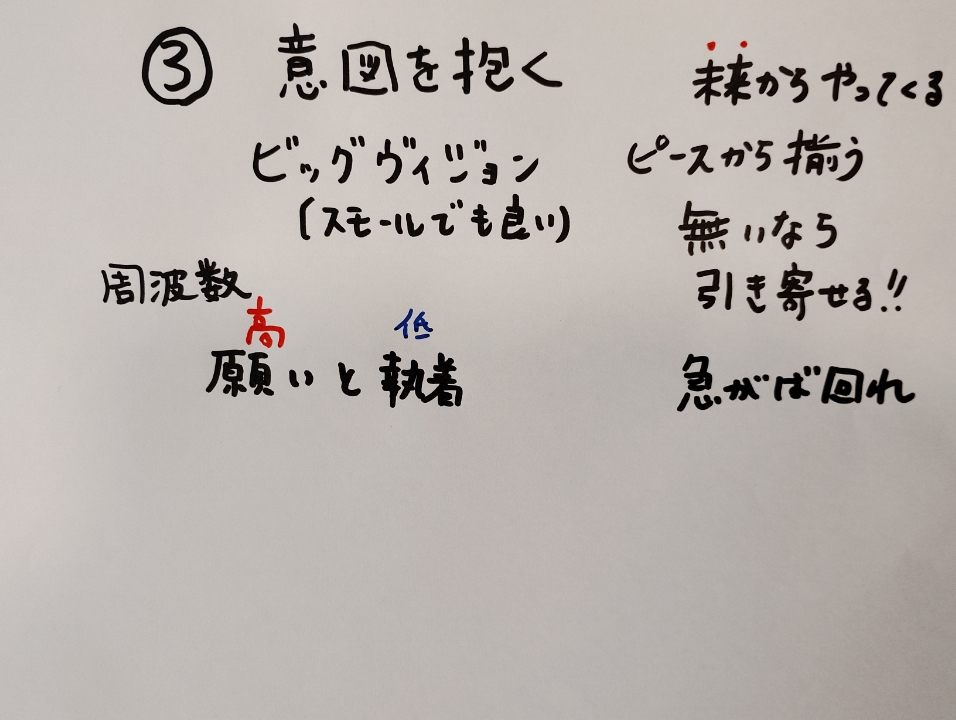 ③ 意図を抱く
ビッグヴィジョン
(スモールでも良い)
周波数
高 低
願いと執着
未来からやってくる
ピースから揃う
無いなら
引き寄せる!!
急がば回れ